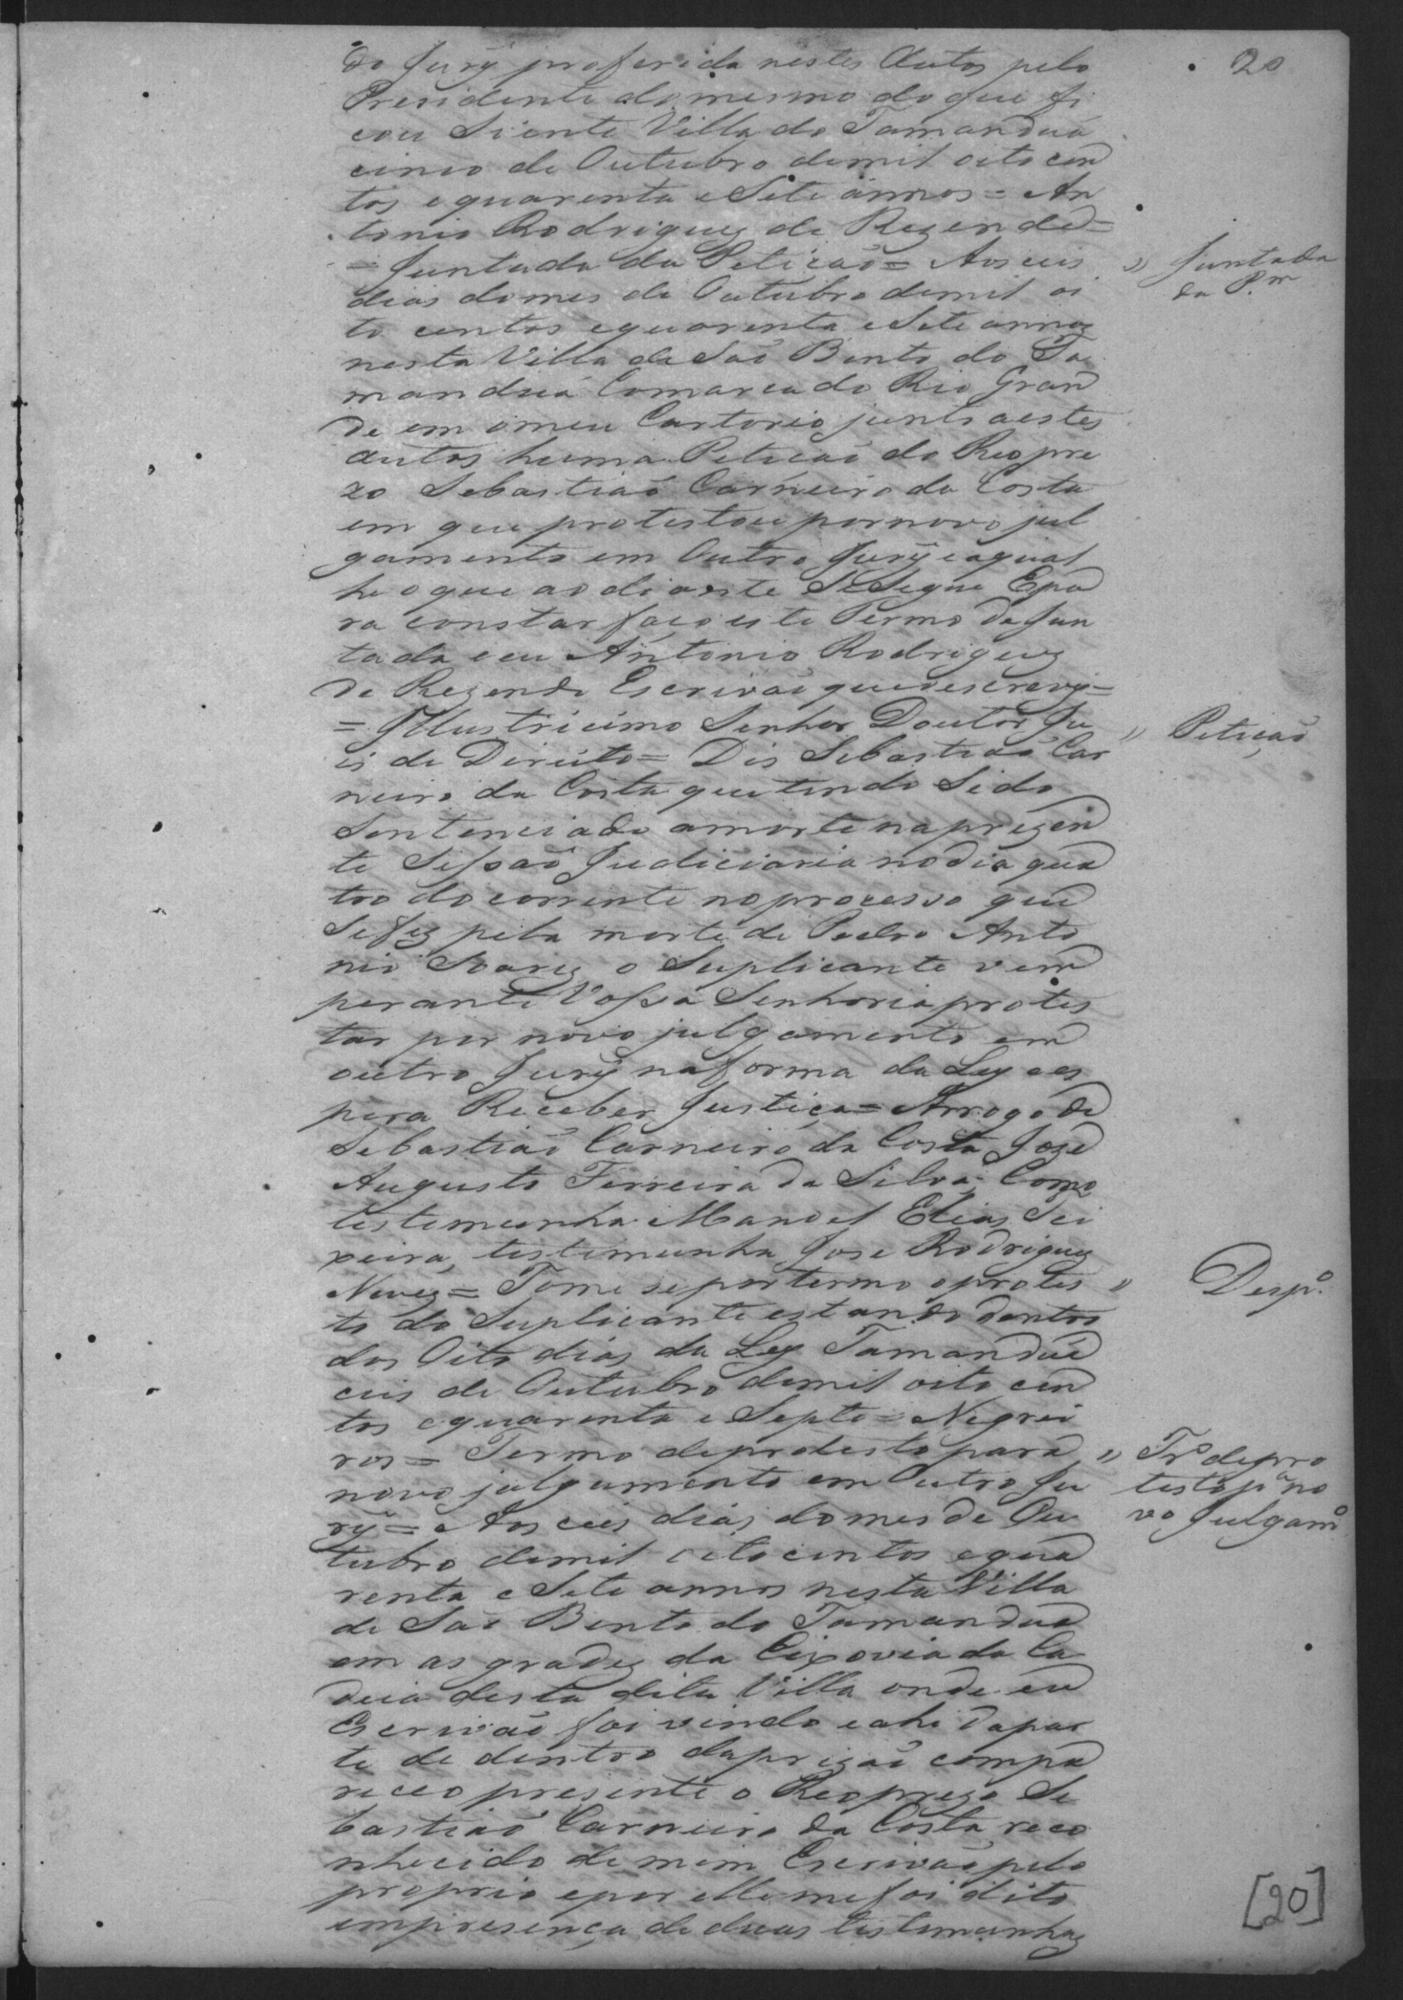 20
do Jury proferida nestes Autos pelo
Presidente do mesmo do que fi
cou Siente Villa do Tamanduá
cinco de Outubro demil oito cen
tos equarenta eSete annos = An
tonio Rodrigues de Rezende =
= Juntada da Petição = Aos ceis
dias domes de Outubro demil oi
to centos equarenta eSete annos
nesta Villa de São Bento do Ta
manduá Comarca do Rio Gran
de em omeu Cartorio junto aestes
autos huma Petição do Reo pre
zo Sebastião Carneiro da Costa
em que protestou pornovo jul
gamento em Outro Jury eaqual
he oque ao diante Se Segue Epa
ra constar faço este Termo de Jun
tada eeu Antonio Rodrigues
de Rezende Escrivão que oescrevy =
= Illustricimo Senhor Doutor Ju
is de Direito = Dis Sebastião Car
neiro da Costa que tendo Sido
Sentenciado amorte naprezen
te Sessão Judiciaria nodia qua
tro do corrente noprocesso que
Sefez pela morte de Pedro Anto
nio Soares o Suplicante vem
perante Vossa Senhoria protes
tar por novo julgamento em
outro Jury naforma da Ley ees
pera Receber Justiça = Arrogo de
Sebastião Carneiro da Costa Joze
Augusto Ferreira da Silva, Como
testemunha Manoel Elias Tei
xeira, testemunha Jose Rodrigues
Neves = Tome se portermo oprotes
to do Suplicante estando dentro
dos Oito dias da Ley Tamanduá
ceis de Outubro demil oito cen
tos equarenta e Septe = Negrei
ros = Termo deprotesto para
novo julgamento em Outro Ju
ry = Aos ceis dias domes de Ou
tubro demil oitocentos equa
renta eSete annos nesta Villa
de São Bento do Tamanduá
em as grades da Enxovia da Ca
deia desta dita Villa onde eu
Escrivão foi vindo eahi dapar
te de dentro daprizão compa
receo presente o Reo prezo Se
bastião Carneiro da Costa reco
nhecido de mim Escrivão pelo
proprio epor elle me foi dito
empresença de duas testemunhas
» Juntada
da P.m
» Petição
» Desp.o
» Tr.o depro
testo p.a no
vo Julgam.o
[20]